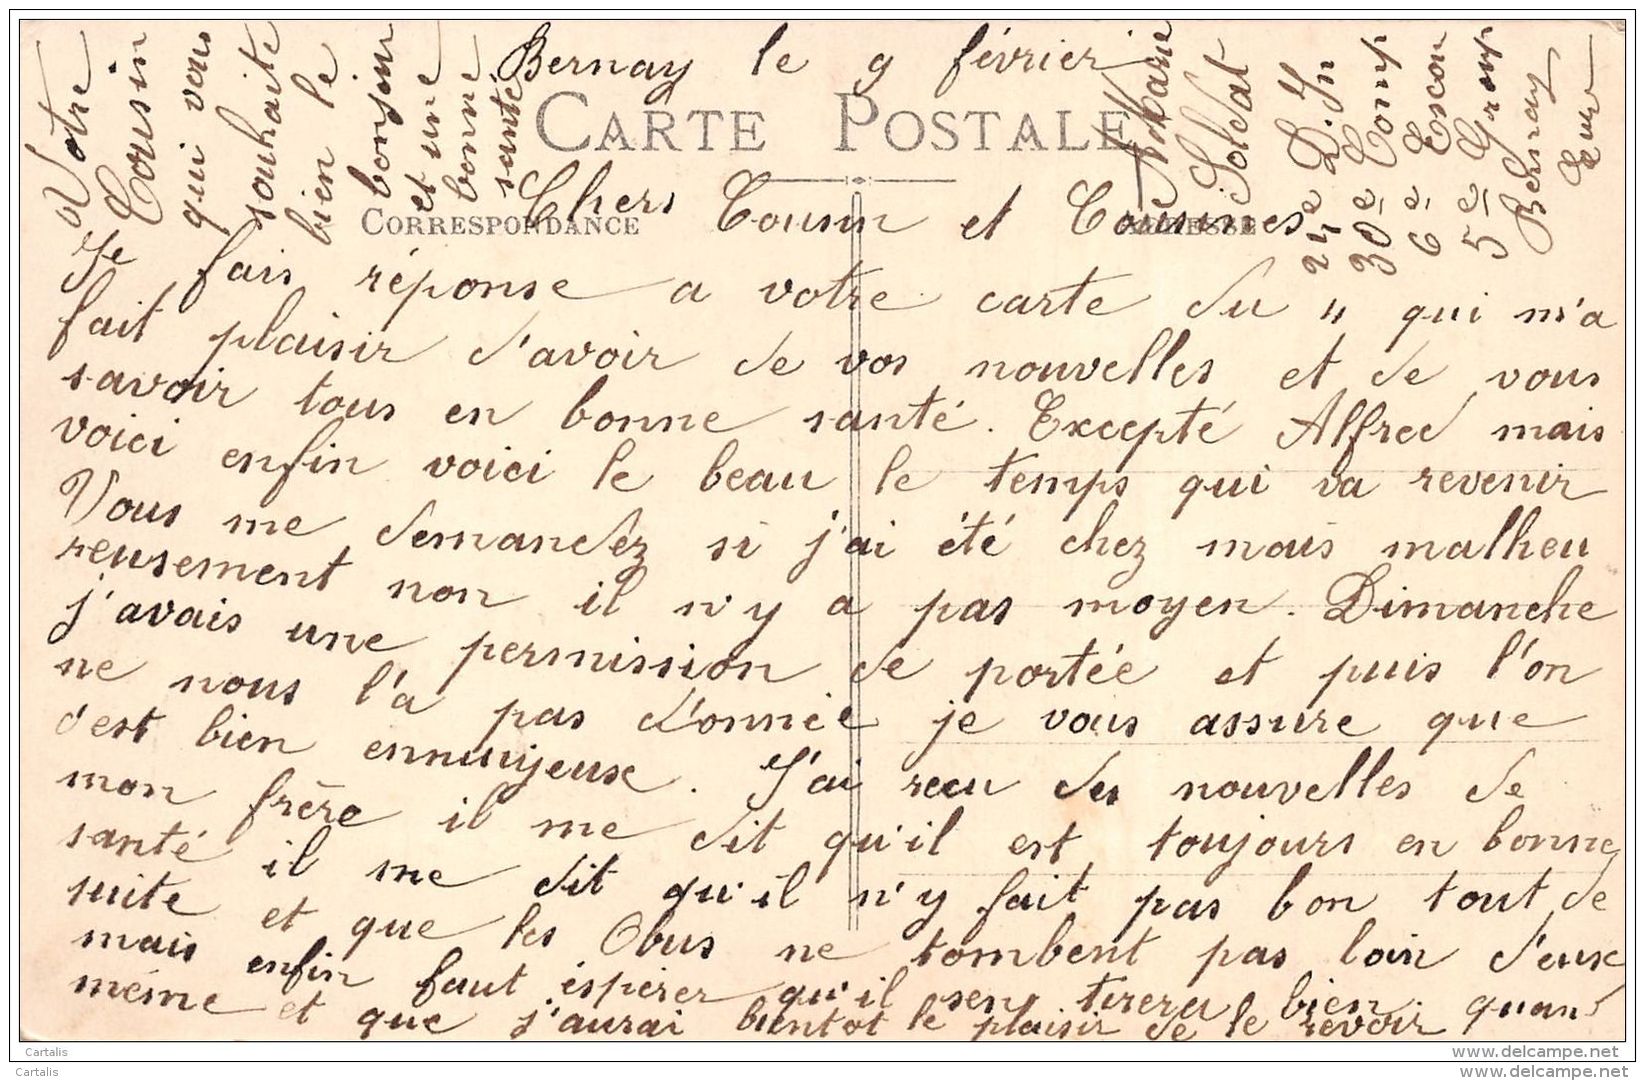 Bernay le 9 février
CARTE POSTALE
CORRESPONDANCE
Chers Cousin et Cousines
Je fais réponse a votre carte du " qui m'a
fait plaisir d'avoir de vos nouvelles et de vous
savoir tous en bonne santé. Excepté Alfred mais
voici enfin voici le beau le temps qui va revenir
Vous me demandez si j'ai été chez mais malheu
reusement non il n'y a pas moyen. Dimanche
j'avais une permission de portée et puis l'on
ne nous l'a pas donnée je vous assure que
c'est bien ennuyeux. J'ai recu des nouvelles de
mon frère il me dit qu'il est toujours en bonne
santé il me dit qu'il n'y fait pas bon tout de
suite et que les Obus ne tombent pas loin d'eux
mais enfin faut espérer qu'il sen tirera bien quand
même et que j'aurai bientot le plaisir de le revoir
Votre
Cousin
qui vous
souhaite
bien le
bonjour
et une
bonne
santé
Soldat
24e D.In
30e Comp
6e Escou
5e Group
Bernay
Eure
Cartalis
www.delcampe.net
Cartalis
www.delcampe.net